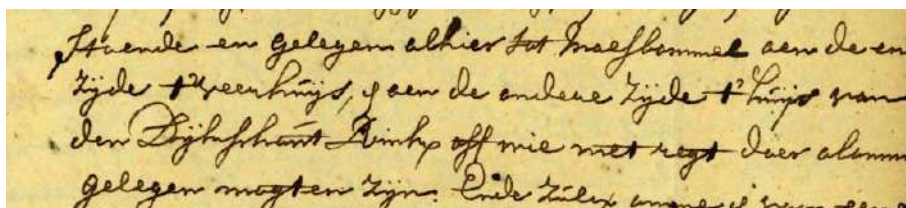 staende en gelegen alhier tot Maesbommel aen de en
zijde t weeshuijs, en aen de andere zijde t huijs van
den Dijkschout Rinks off wie met regt daer alomm
gelegen mogten zijn. Ende zulx